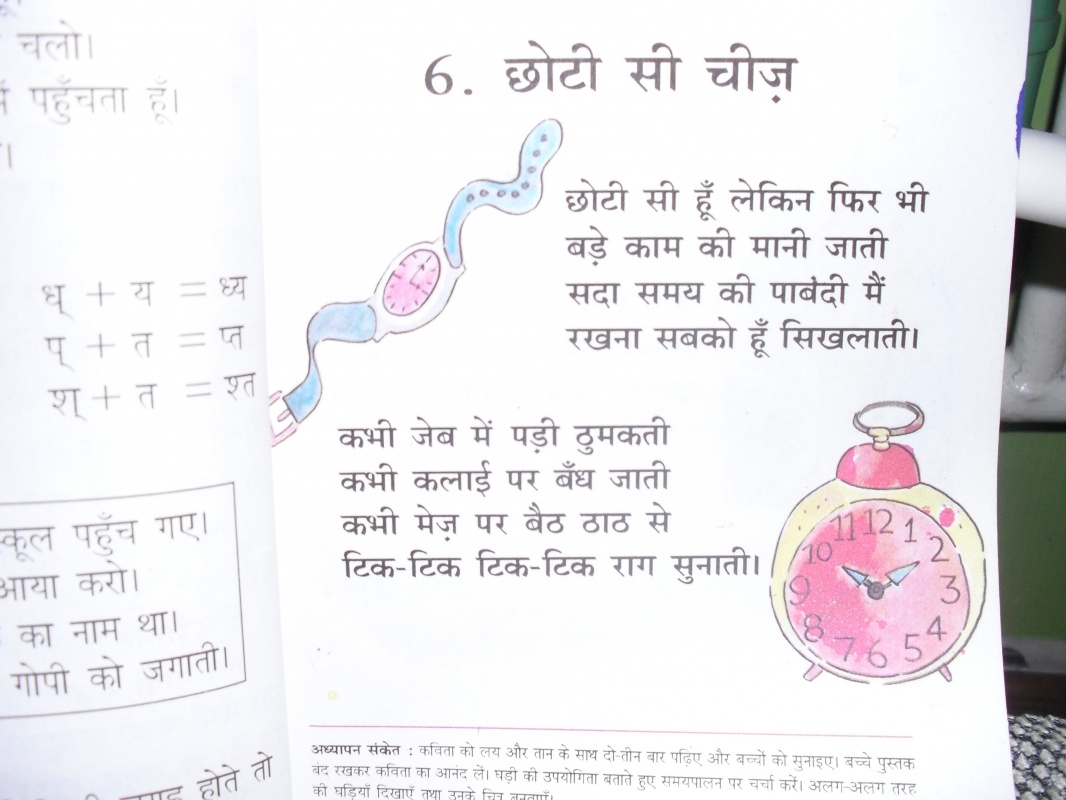 चलो।
पहुँचता हूँ।
ध् + य = ध्य
प् + त = प्त
श् + त = श्त
स्कूल पहुँच गए।
आया करो।
का नाम था।
गोपी को जगाती।
होते तो
6. छोटी सी चीज़
छोटी सी हूँ लेकिन फिर भी
बड़े काम की मानी जाती
सदा समय की पाबंदी मैं
रखना सबको हूँ सिखलाती।
कभी जेब में पड़ी ठुमकती
कभी कलाई पर बँध जाती
कभी मेज़ पर बैठ ठाठ से
टिक-टिक टिक-टिक राग सुनाती।
11 12 1
10 2
9 3
8 4
7 6 5
अध्यापन संकेत : कविता को लय और तान के साथ दो-तीन बार पढ़िए और बच्चों को सुनाइए। बच्चे पुस्तक
बंद रखकर कविता का आनंद लें। घड़ी की उपयोगिता बताते हुए समयपालन पर चर्चा करें। अलग-अलग तरह
की घड़ियाँ दिखाएँ तथा उनके चित्र बनवाएँ।